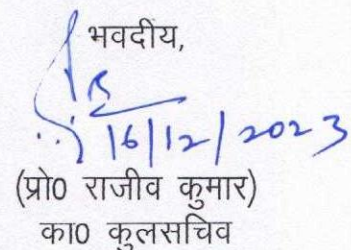 भवदीय,
16/12/2023
(प्रो0 राजीव कुमार)
का0 कुलसचिव